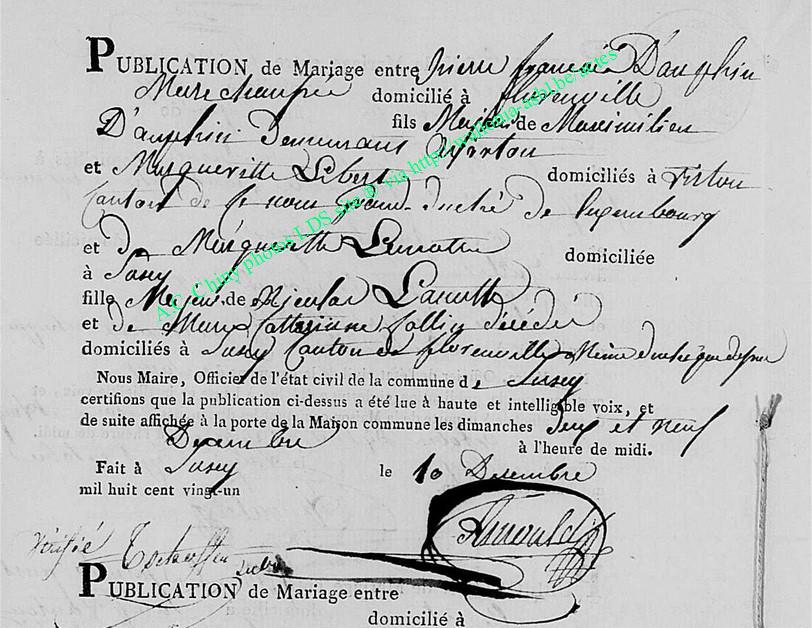 PUBLICATION de Mariage entre pierre françois Dauphin
domicilié à florenville
fils Majeur de Maximilien
Dauphin Demeurans
et Margueritte Libert domiciliés à Virton
Canton de Ce nom grand-duché de luxembourg
et de Margueritte domiciliée
à
fille Majeur de Nicolas
et de Marie Catherinne Collin décédé
domiciliés à Canton de florenville Même duché que dessus
Nous Maire, Officier de l'état civil de la commune de
certifions que la publication ci-dessus a été lue à haute et intelligible voix, et
de suite affichée à la porte de la Maison commune les dimanches deux et neuf
Decembre à l'heure de midi.
Fait à le 10 Decembre
mil huit cent vingt-un
Vérifié
PUBLICATION de Mariage entre
domicilié à
A.C. Chiny photos LDS site ® via http://